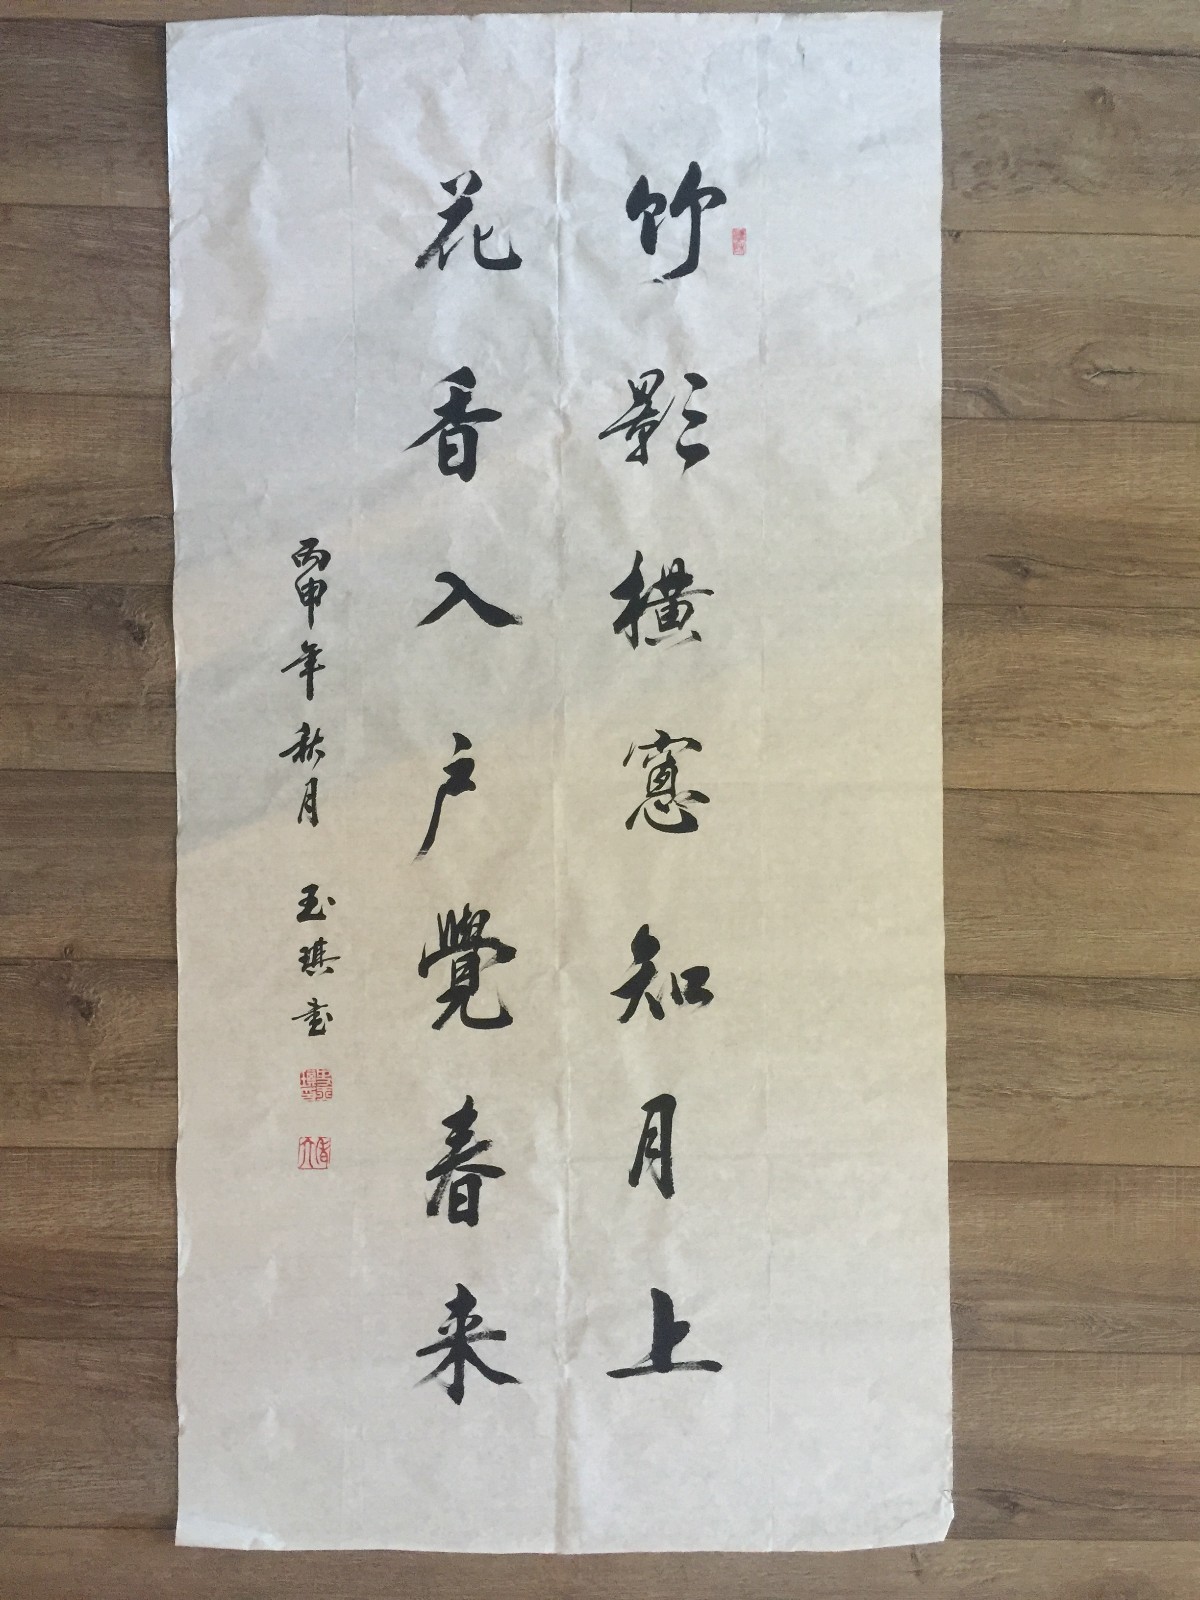 竹影横窓知月上
花香入戶覺春来
丙申年秋月 玉琪书